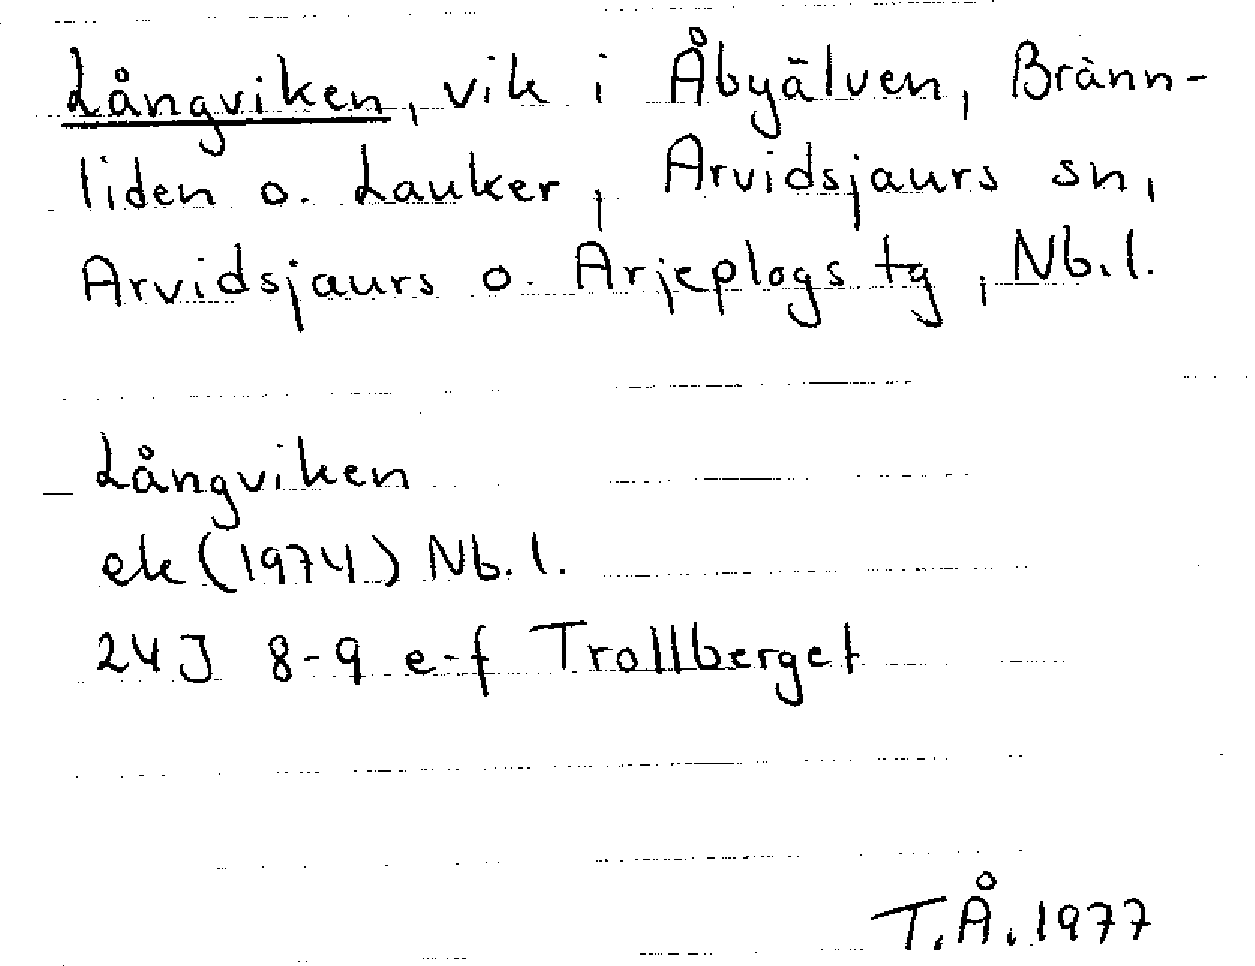 Långviken, vik i Åbyälven, Bränn-
liden o. Lauker, Arvidsjaurs sn,
Arvidsjaurs o. Arjeplogs tg, Nb.l.
Långviken
ek (1974) Nb.l.
24J 8-9 e-f Trollberget
T.Å. 1977